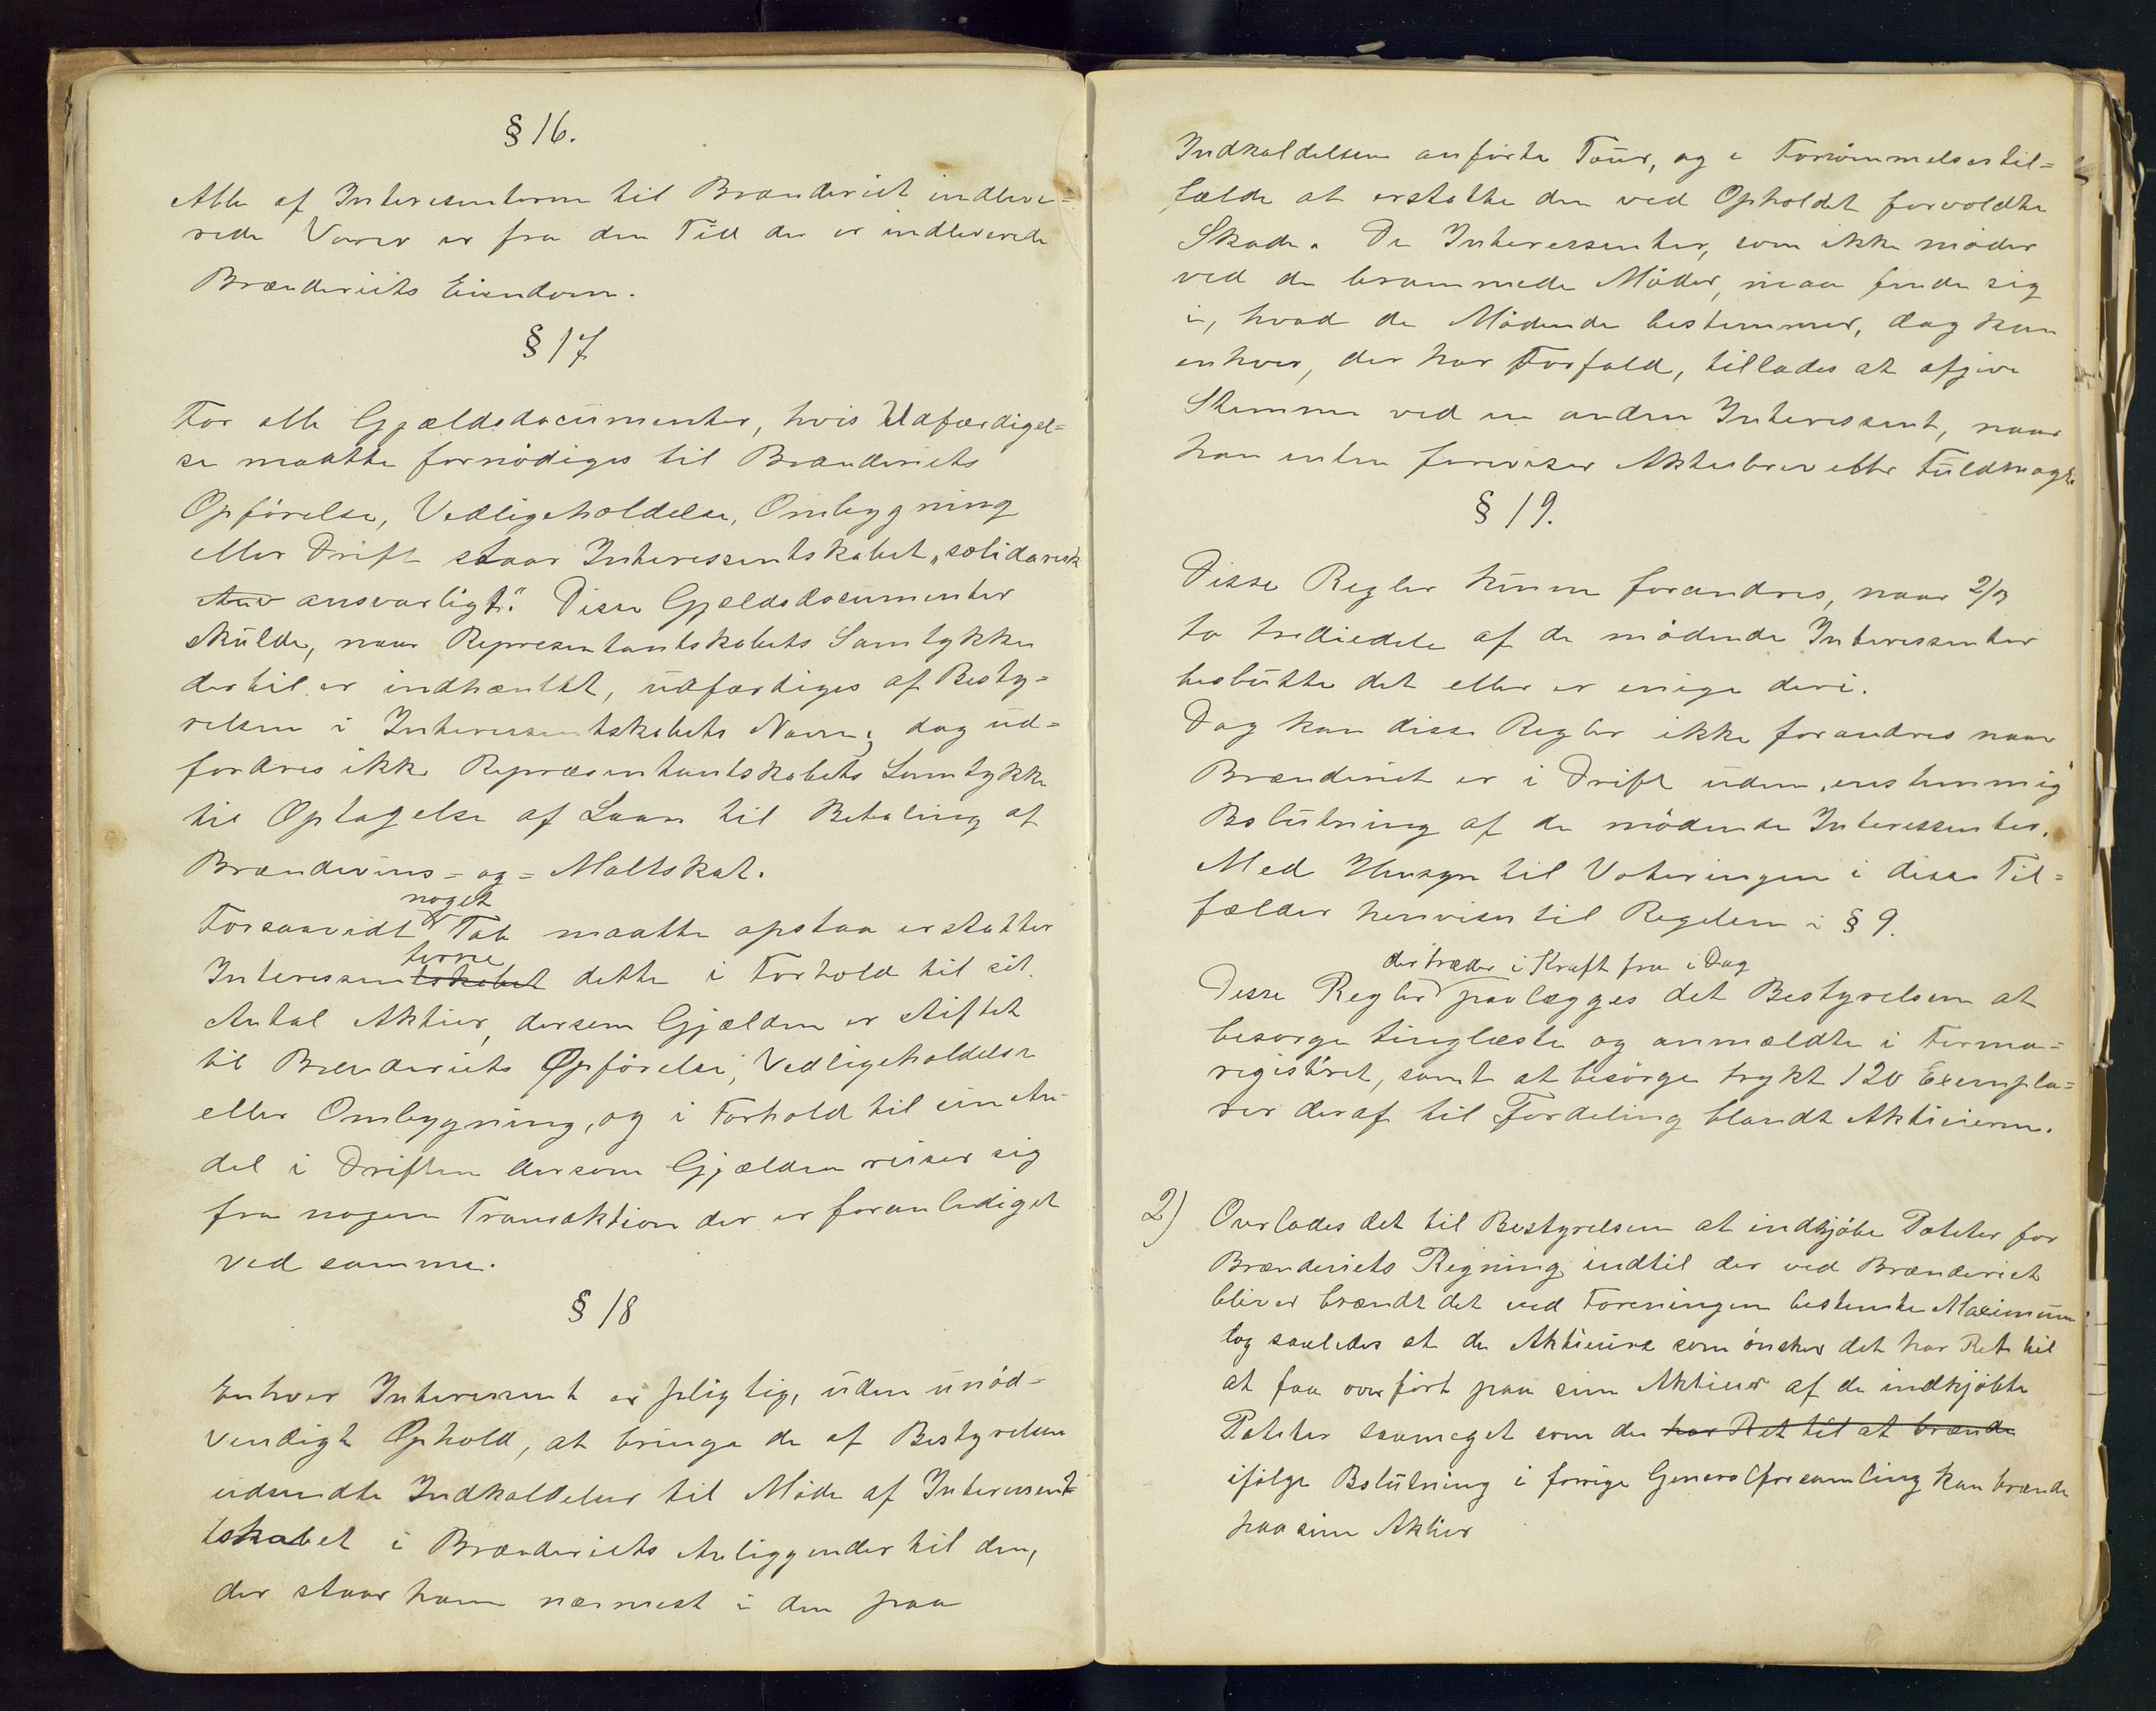 § 16.
Alle af Interesenterne til Brænderiet indleve=
rede Varer er fra den Tid de er indleverede
Brænderiets Eiendom.
§ 17
For alle Gjældsdocumenter, hvis Udfærdigel=
se maatte fornødiges til Brænderiets
Opførelse, Vedligeholdelse, Ombygning
eller Drift staar Interessentskabet „solidarisk
ansvarligt." Disse Gjeldsdocumenter
skulde, naar Representantskabets Samtykke
dertil er indhæntet, udfærtiges af Besty=
relsen i Interessentskabets Navn; dog ud=
fordres ikke Repræsentantskabets Samtykke
til Optagelse af Laan til Betaling af
Brændevins= og= Maltskat.
noget
Forsaavidt Tab maatte opstaa erstatter
terne
Interessentskabet dette i Forhold til sit
Antal Aktier, dersem Gjælden er stiftet
til Brænderiets Opførelse, Vedligeholdelse
eller Ombygning, og i Forhold til sin An-
del i Driften dersom Gjælden reiser sig
fra nogen Transaktion der er foranlediget
ved samme.
§ 18
Enhver Interessent er pligtig, uden unød=
vendigt Ophold, at bringe de af Bestyrelsen
udsendte Indkaldelser til Møde af Interessent=
tskabet i Brænderiets Anliggender til den,
der staar ham nærmest i den paa
Indkaldelsen anførte Tour, og i Forsømmelsestil=
fælde at erstatte den ved Opholdet forvoldte
Skade. De Interessenter, som ikke møder
ved de berammede Møder, maa finde sig
i, hvad de Mødende bestemmer, dog kan
enhver, der har Forfald, tillades at afgive
Stemme ved en anden Interessent, naar
han enten foreviser Aktiebrev eller Fuldmagt.
§ 19.
Disse Regler kunne forandres, naar 2/3
to trediedele af de mødende Interessenter
beslutte det eller er enige deri.
Dog kan disse Regler ikke forandres naar
Brænderiet er i Drift uden „enstemmig"
Beslutning af de mødende Interessenter.
Med Hensyn til Voteringen i disse Til=
fælder henvises til Regelen i § 9.
der træder i Kraft fra i Dag
Disse Regler paalægges det Bestyrelsen at
besørge tinglæste og anmældte i Firma=
registeret, samt at besørge trykt 120 Exempla=
rer deraf til Fordeling blandt Aktieierne.
2) Overlades det til Bestyrelsen at indkjøbe Poteter for
Brænderiets Regning indtil der ved Brænderiet
bliver brændt det ved Foreningen bestemte Maximum
dog saaledes at de Aktieiere som ønsker det har Ret til
at faa overført paa sine Aktier af de indkjøbte
Poteter saameget som de har Ret til at brænde
ifølge Beslutning i forrige Generalforsamling kan brænde
paa sine Aktier